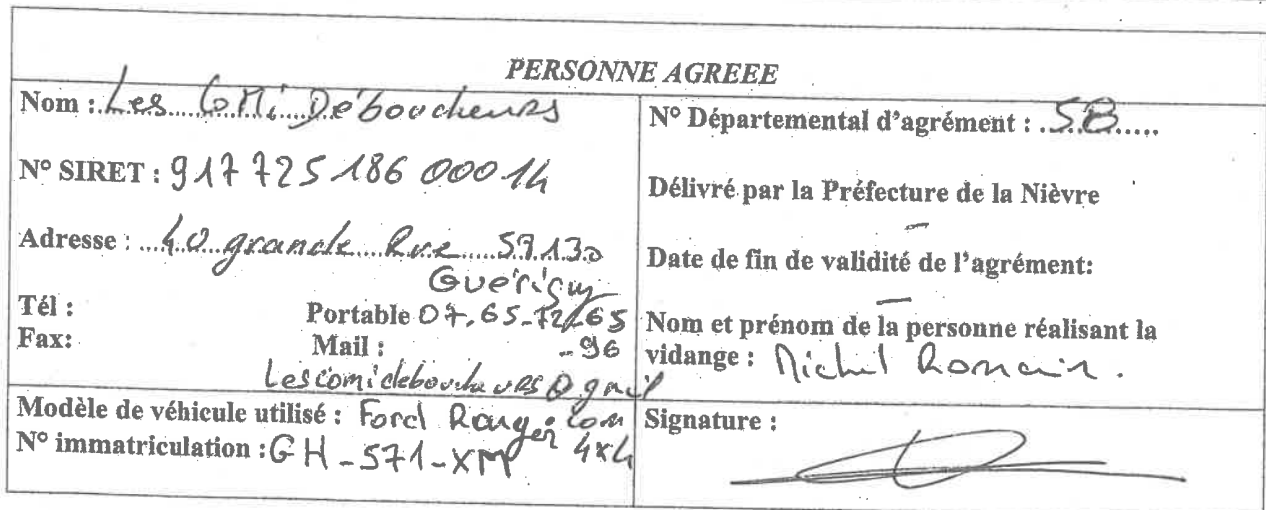 PERSONNE AGREEE
Nom : Les Comi Déboucheurs
N° SIRET : 917 725 186 00014
Adresse : 40 grande Rue 58130
Guérigny
Tél :
Portable 07.65.72.65
Fax:
Mail : -96
Lescomideboucheurs@gmail
.com
Modèle de véhicule utilisé : Ford Ranger 4x4
N° immatriculation : GH-571-XM
N° Départemental d'agrément : 5B
Délivré par la Préfecture de la Nièvre
Date de fin de validité de l'agrément:
Nom et prénom de la personne réalisant la
vidange : Michel Romain.
Signature :